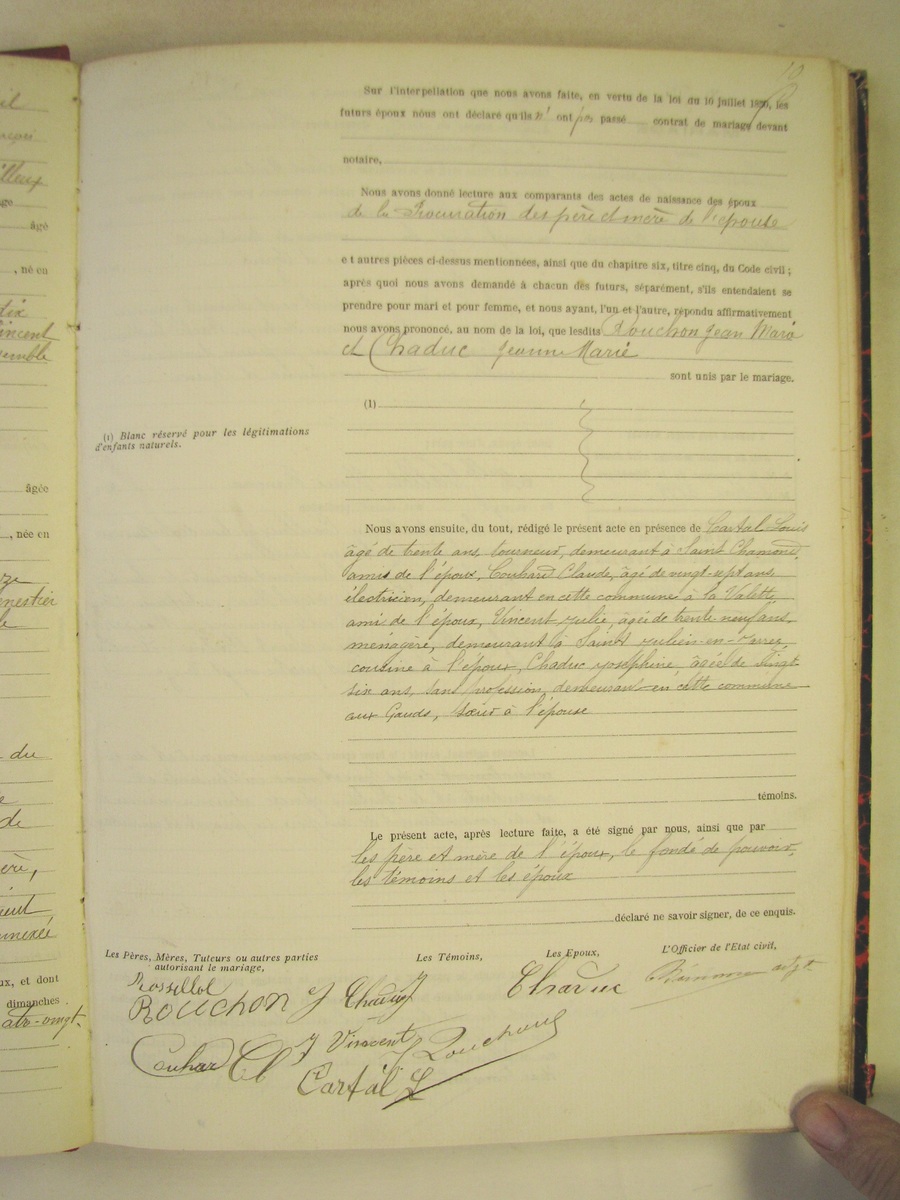 10
Sur l'interpellation que nous avons faite, en vertu de la loi du 10 juillet 1850, les
futurs époux nous ont déclaré qu'ils n' ont pas passé contrat de mariage devant
notaire,
Nous avons donné lecture aux comparants des actes de naissance des époux
de la Procuration des père et mère de l'épouse
et autres pièces ci-dessus mentionnées, ainsi que du chapitre six, titre cinq, du Code civil ;
après quoi nous avons demandé à chacun des futurs, séparément, s'ils entendaient se
prendre pour mari et pour femme, et nous ayant, l'un et l'autre, répondu affirmativement
nous avons prononcé, au nom de la loi, que lesdits Rouchon Jean Marie
et Chaduc Jeanne Marie
sont unis par le mariage.
(1)
(1) Blanc réservé pour les légitimations
d'enfants naturels.
Nous avons ensuite, du tout, rédigé le présent acte en présence de Cartal Louis
âgé de trente ans, tourneur, demeurant à Saint Chamond,
amis de l'époux, Couhard Claude, âgé de vingt-sept ans,
électricien, demeurant en cette commune à la Valette
ami de l'époux, Vincent Julie, âgée de trente neuf ans,
ménagère, demeurant à Saint Julien-en-Jarrez
cousine à l'époux, Chaduc Joséphine, âgée de Vingt-
six ans, sans profession, demeurant en cette commune
aux Gauds, sœur à l'épouse
témoins.
Le présent acte, après lecture faite, a été signé par nous, ainsi que par
les père et mère de l'époux, le fondé de pouvoir,
les témoins et les époux
déclaré ne savoir signer, de ce enquis.
Les Pères, Mères, Tuteurs ou autres parties
autorisant le mariage,
Les Témoins,
Les Epoux,
L'Officier de l'Etat civil,
Rossillol
Rouchon J Chaduc J
Chaduc
adjt
Couhard Cl J Vincent J Rouchon
Cartal L
âgé
, né en
dix
Vincent
semble
âgée
, née en
du
de
ère,
ux, et dont
dimanches
atre-vingt-